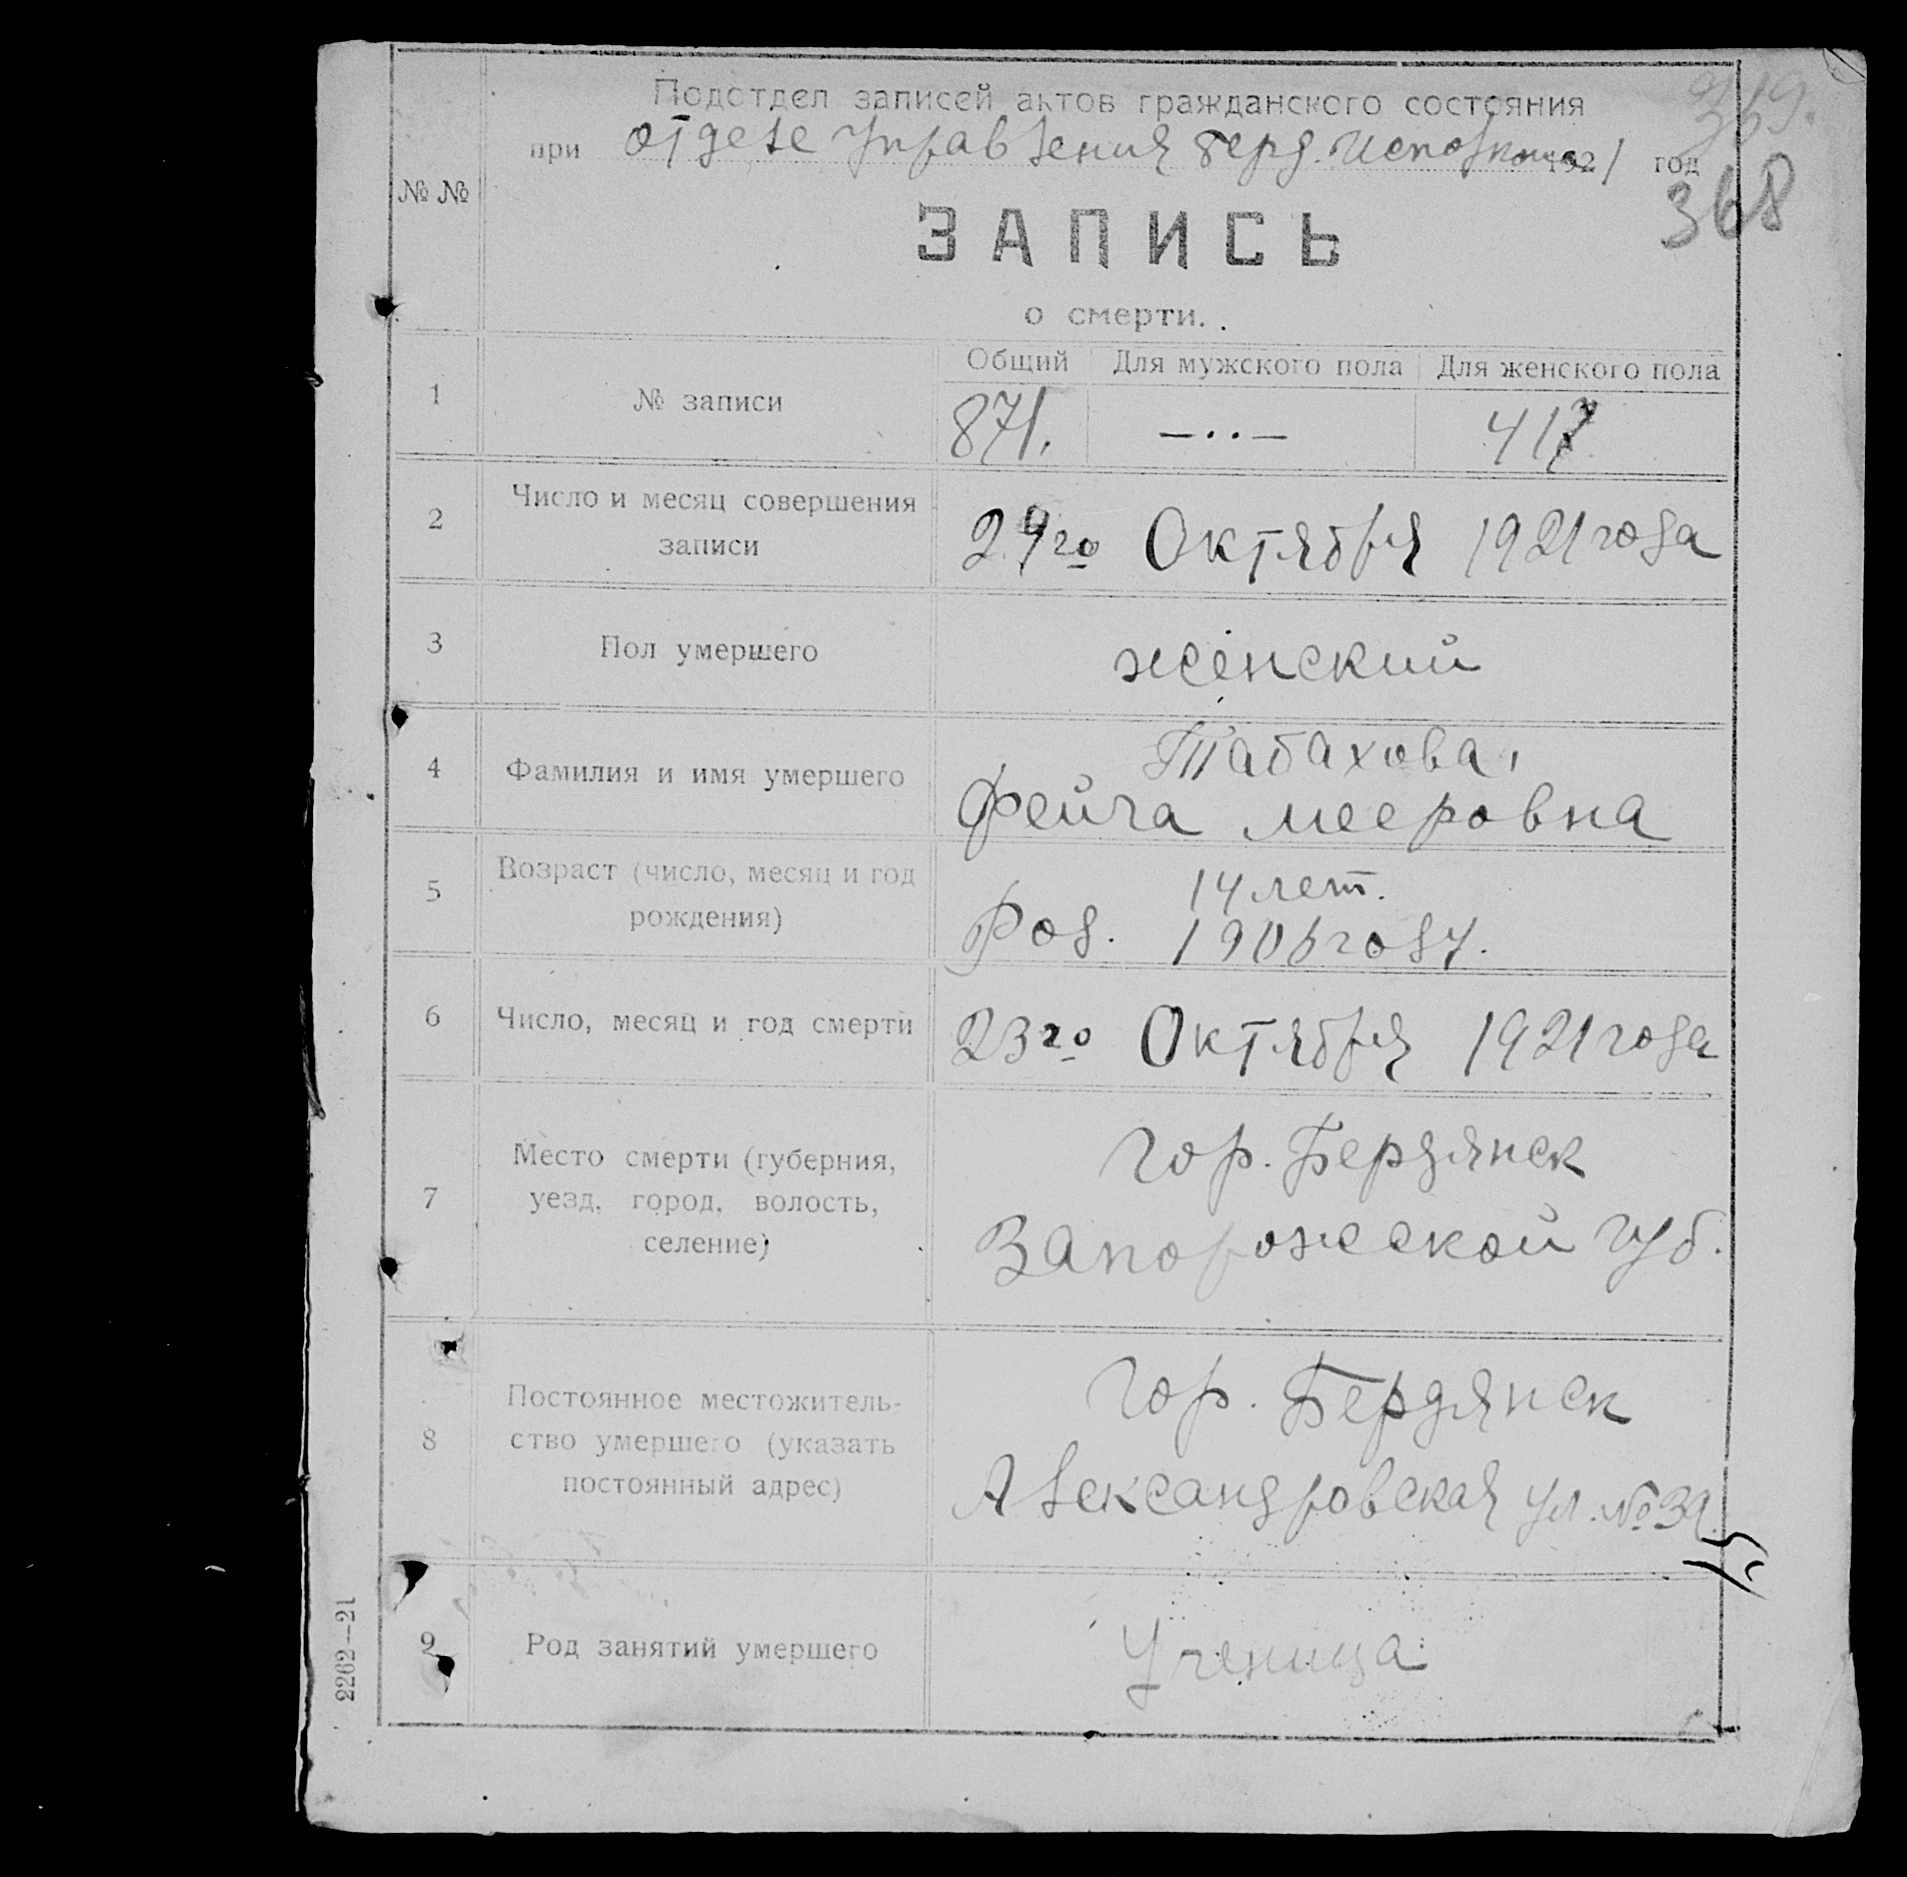 369.
368
Подотдел записей актов гражданского состояния
при отделе управления Берд. Исполкома 1921 год
№ №
ЗАПИСЬ
о смерти.
Общий Для мужского пола Для женского пола
1 № записи 871. —··— 417
2 Число и месяц совершения записи 24го Октября 1921 года
3 Пол умершего женский
4 Фамилия и имя умершего Табахова,
Фейга Мееровна
5 Возраст (число, месяц и год рождения) 14 лет.
Род. 1906 году.
6 Число, месяц и год смерти 23го Октября 1921 года
7 Место смерти (губерния,
уезд, город, волость,
селение)
гор. Бердянск
Запорожской губ.
8 Постоянное местожитель-
ство умершего (указать
постоянный адрес)
гор. Бердянск
Александровская ул. №
9 Род занятий умершего Ученица
2262—21